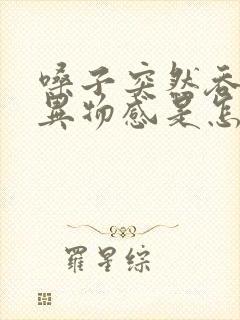 嗓子突然吞
異物感是怎
羅星綜